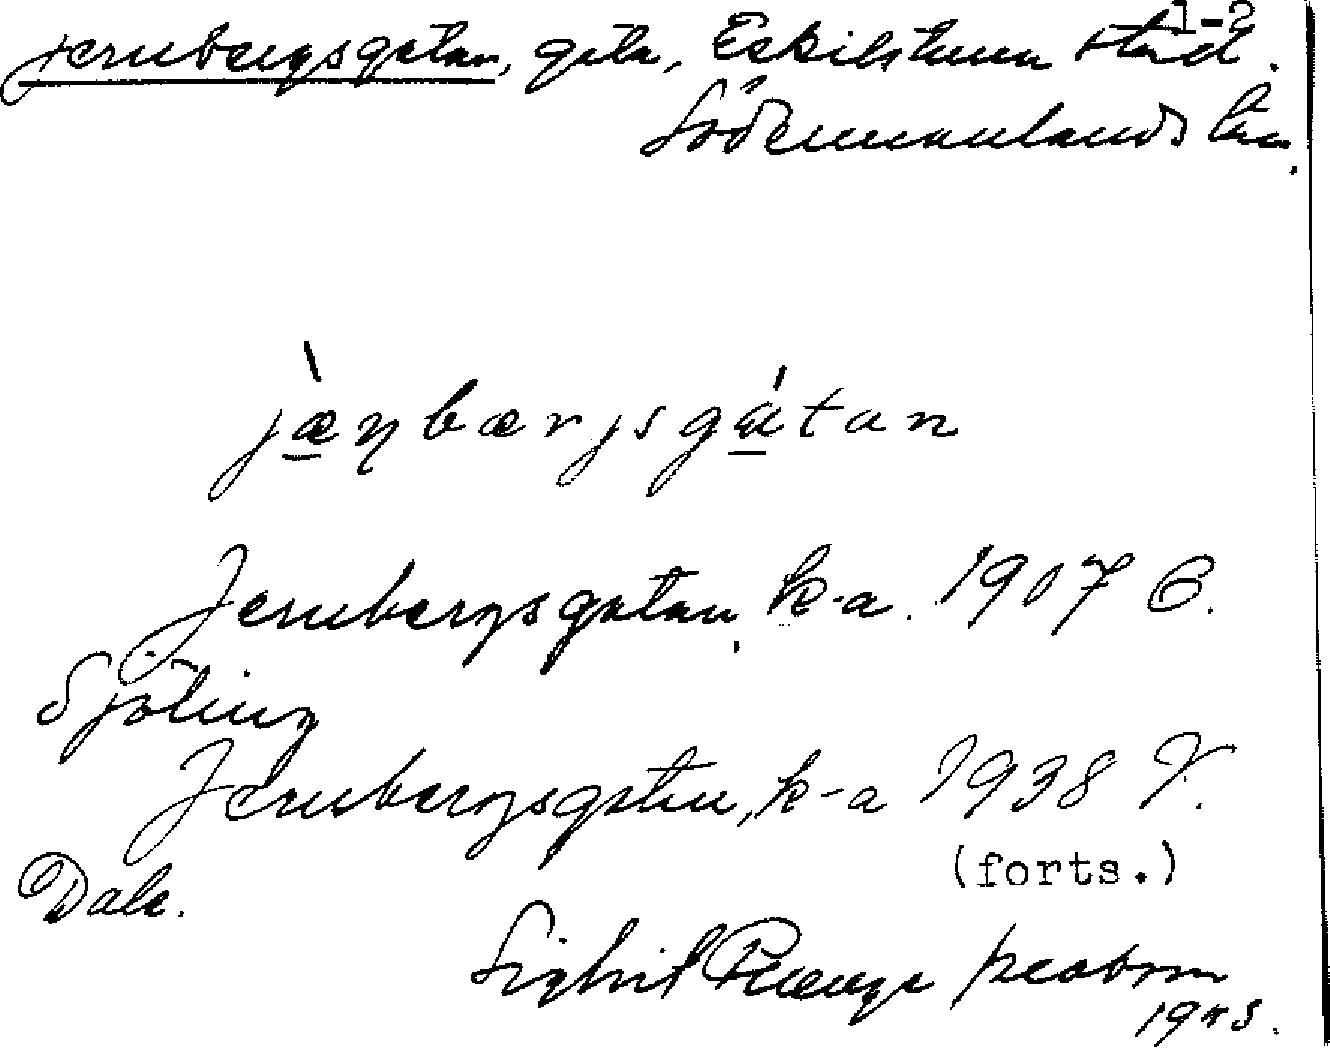 1-2
Jernbergsgatan, gata, Eskilstuna stad.
Södermanlands län.
jæŋbærjsgatan
Jernbergsgatan, k-a. 1907 C.
Sjöling
Jernbergsgatan, k-a 1938 V.
Dala.
(forts.)
Sighrid